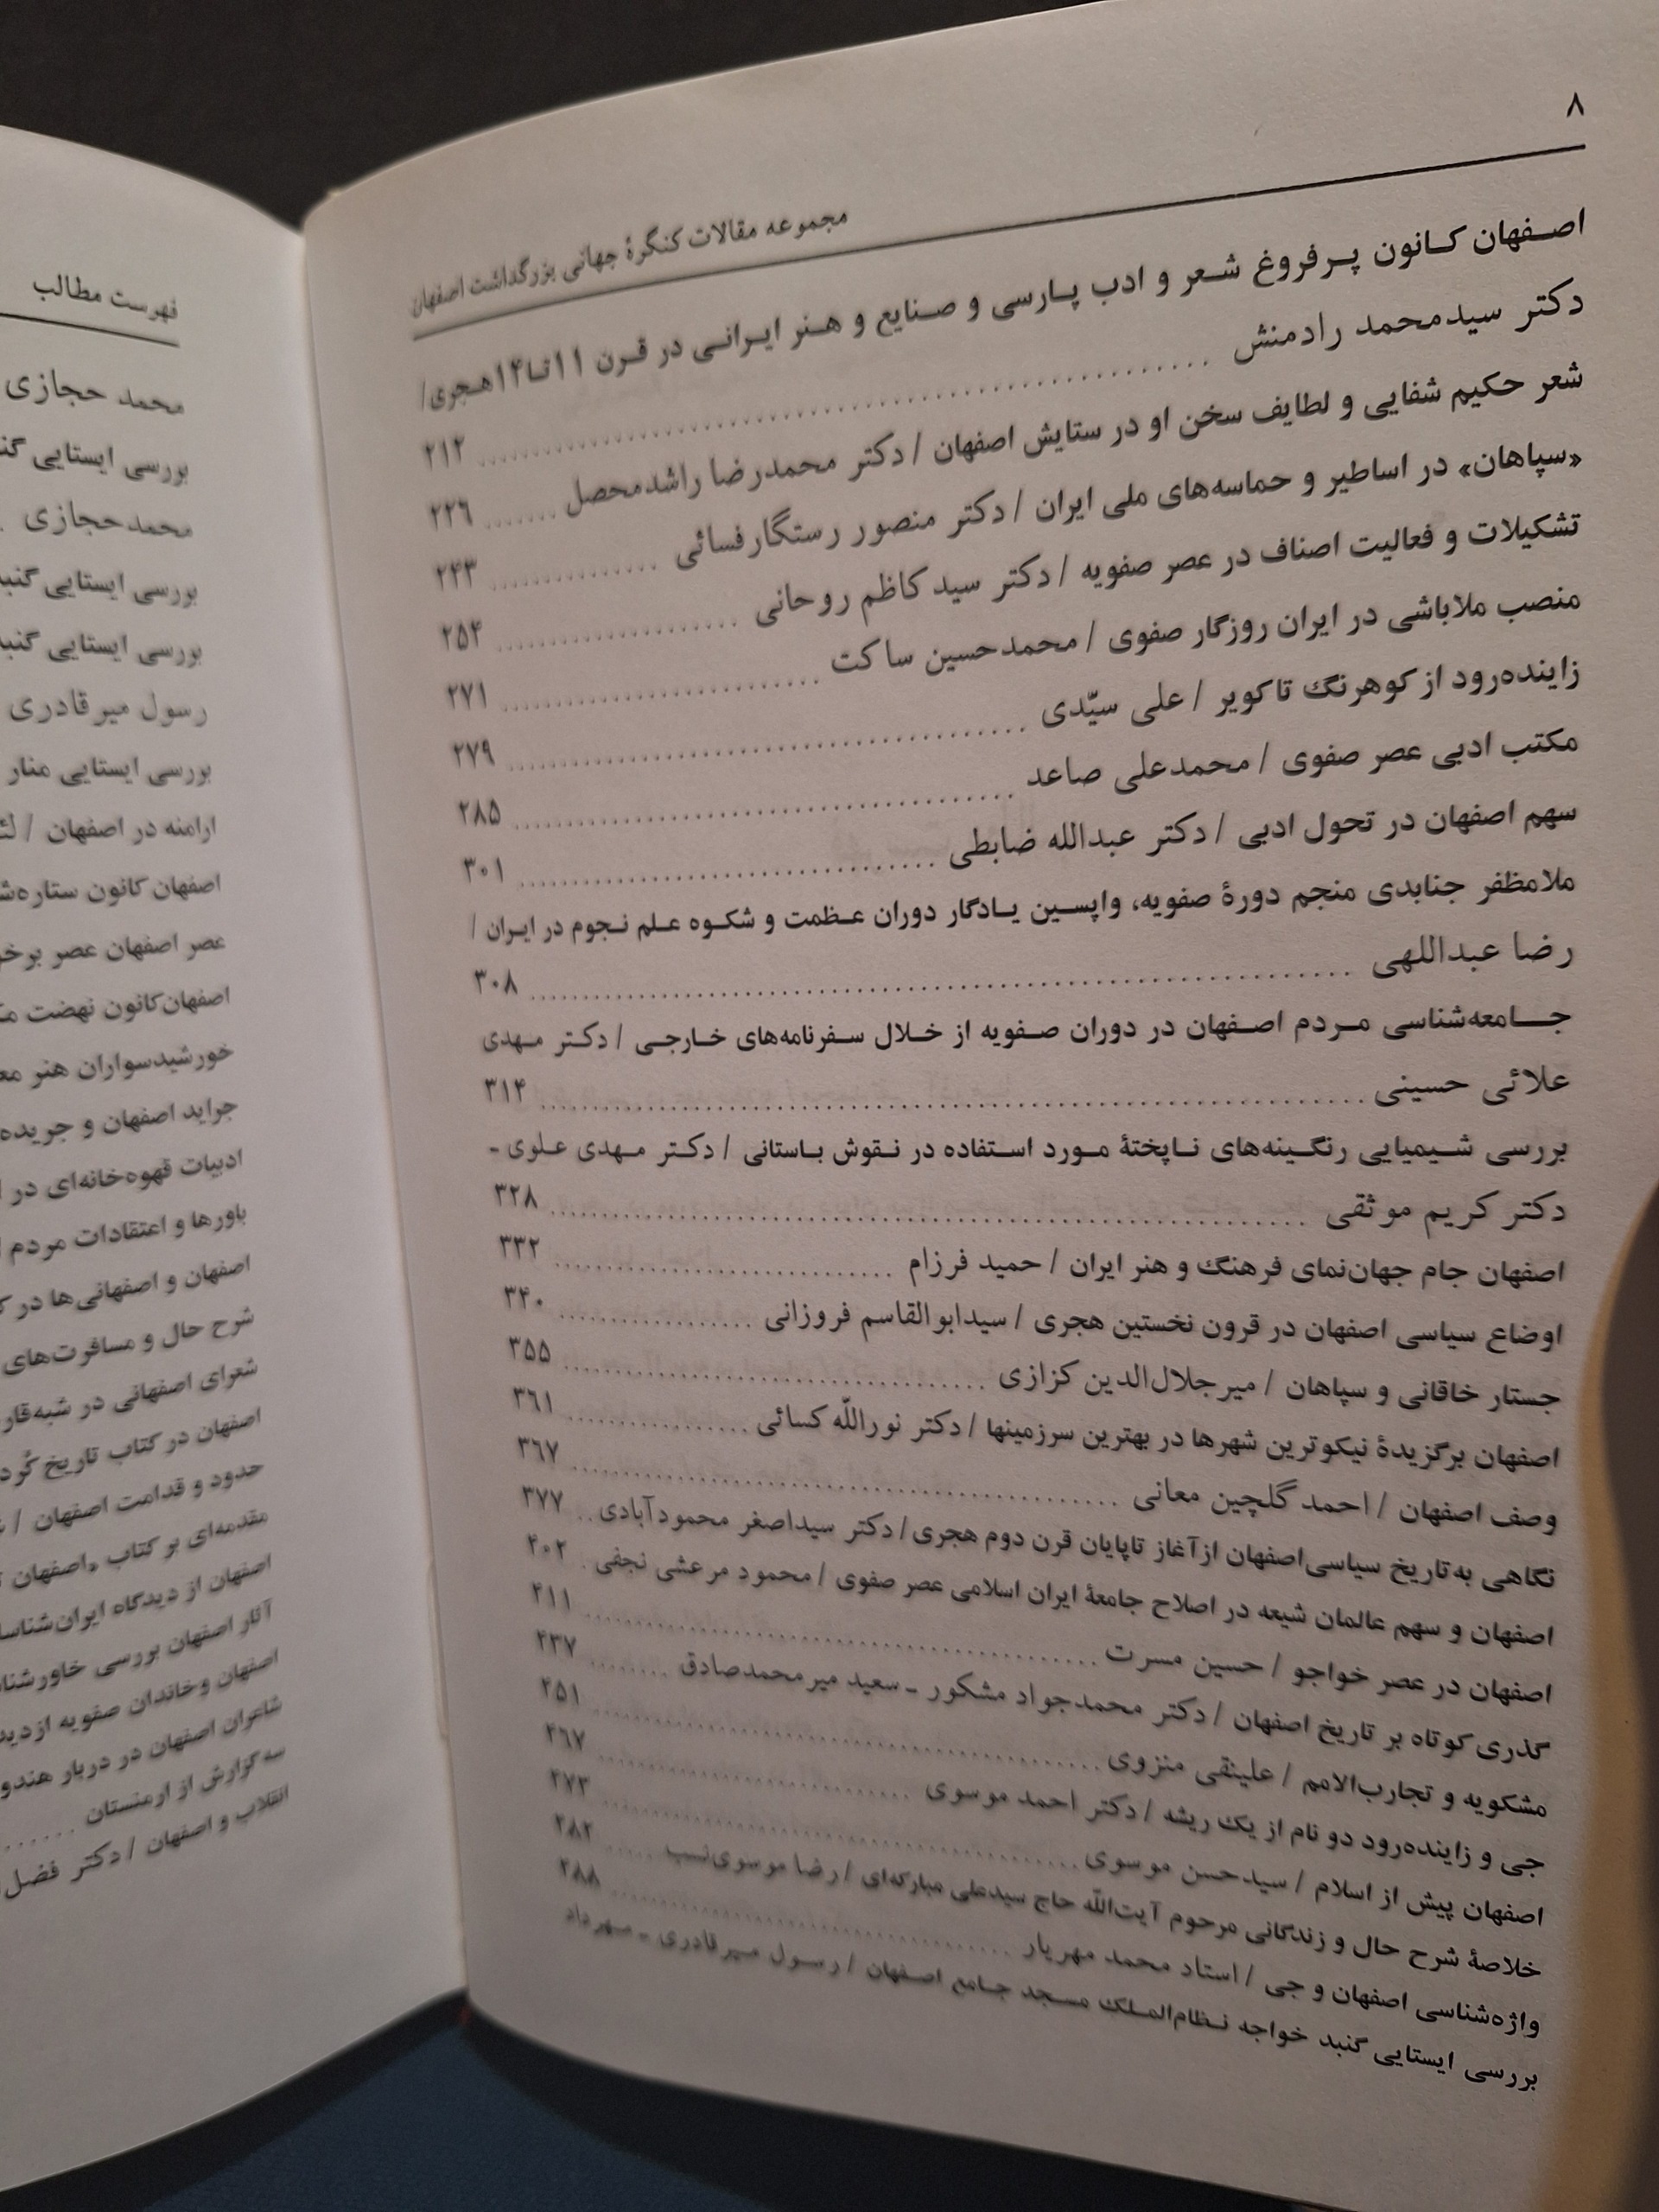 ۸
مجموعه مقالات کنگرهٔ جهانی بزرگداشت اصفهان
اصفهان کانون پرفروغ شعر و ادب پارسی و صنایع و هنر ایرانی در قرن ۱۱تا۱۴هجری/
دکتر سیدمحمد رادمنش ........ ۲۱۲
شعر حکیم شفایی و لطایف سخن او در ستایش اصفهان / دکتر محمدرضا راشدمحصل ........ ۲۲۶
«سپاهان» در اساطیر و حماسه‌های ملی ایران / دکتر منصور رستگارفسائی ........ ۲۴۳
تشکیلات و فعالیت اصناف در عصر صفویه / دکتر سید کاظم روحانی ........ ۲۵۴
منصب ملاباشی در ایران روزگار صفوی / محمدحسین ساکت ........ ۲۷۱
زاینده‌رود از کوهرنگ تا کویر / علی سیّدی ........ ۲۷۹
مکتب ادبی عصر صفوی / محمدعلی صاعد ........ ۲۸۵
سهم اصفهان در تحول ادبی / دکتر عبدالله ضابطی ........ ۳۰۱
ملامظفر جنابدی منجم دورهٔ صفویه، واپسین یادگار دوران عظمت و شکوه علم نجوم در ایران /
رضا عبداللهی ........ ۳۰۸
جامعه‌شناسی مردم اصفهان در دوران صفویه از خلال سفرنامه‌های خارجی / دکتر مهدی
علائی حسینی ........ ۳۱۴
بررسی شیمیایی رنگینه‌های ناپختهٔ مورد استفاده در نقوش باستانی / دکتر مهدی علوی -
دکتر کریم موثقی ........ ۳۲۸
اصفهان جام جهان‌نمای فرهنگ و هنر ایران / حمید فرزام ........ ۳۳۲
اوضاع سیاسی اصفهان در قرون نخستین هجری / سیدابوالقاسم فروزانی ........ ۳۴۰
جستار خاقانی و سپاهان / میرجلال‌الدین کزازی ........ ۳۵۵
اصفهان برگزیدهٔ نیکوترین شهرها در بهترین سرزمینها / دکتر نورالله کسائی ........ ۳۶۱
وصف اصفهان / احمد گلچین معانی ........ ۳۶۷
نگاهی به تاریخ سیاسی‌اصفهان ازآغاز تاپایان قرن دوم هجری/ دکتر سیداصغر محمودآبادی .. ۳۷۷
اصفهان و سهم عالمان شیعه در اصلاح جامعهٔ ایران اسلامی عصر صفوی / محمود مرعشی نجفی . ۴۰۲
اصفهان در عصر خواجو / حسین مسرت ........ ۴۱۱
گذری کوتاه بر تاریخ اصفهان / دکتر محمدجواد مشکور - سعید میرمحمدصادق ........ ۴۳۷
مشکویه و تجارب‌الامم / علینقی منزوی ........ ۴۵۱
جی و زاینده‌رود دو نام از یک ریشه / دکتر احمد موسوی ........ ۴۶۷
اصفهان پیش از اسلام / سیدحسن موسوی ........ ۴۷۳
خلاصهٔ شرح حال و زندگانی مرحوم آیت‌الله حاج سیدعلی مبارکه‌ای / رضا موسوی‌نسب ........ ۴۸۲
واژه‌شناسی اصفهان و جی / استاد محمد مهریار ........ ۴۸۸
بررسی ایستایی گنبد خواجه نظام‌الملک مسجد جامع اصفهان / رسول میرقادری - مهرداد
فهرست مطالب
محمد حجازی
بررسی ایستایی
محمدحجازی
بررسی ایستایی
بررسی ایستایی
رسول میرقادری
بررسی ایستایی منار
ارامنه در اصفهان /
اصفهان کانون
عصر اصفهان عصر
اصفهان‌کانون نهضت
خورشیدسواران هنر
جراید اصفهان و
ادبیات قهوه‌خانه‌ای در
باورها و اعتقادات مردم
اصفهان و اصفهانی‌ها در
شرح حال و مسافرت‌های
شعرای اصفهانی در
اصفهان در کتاب تاریخ
حدود و قدامت اصفهان /
مقدمه‌ای بر کتاب «اصفهان
اصفهان از دیدگاه
آثار اصفهان بررسی
اصفهان و خاندان صفویه
شاعران اصفهان در دربار
سه گزارش از ارمنستان ......
انقلاب و اصفهان / دکتر فضل